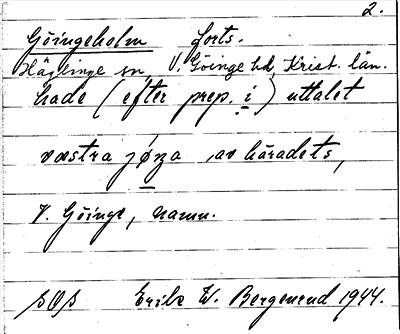 2.
Göingeholm forts.
Häglinge sn, V. Göinge hd, Krist. län.
hade (efter prep. i) uttalet
västra jøŋa av häradets,
V. Göinge, namn.
Erik W. Bergenrud 1944.